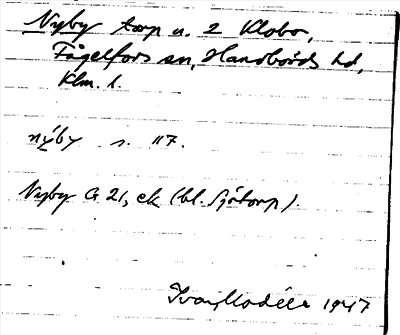 Nyby torp u. 2 Klobo,
Fågelfors sn, Handbörds hd,
Klm. l.
nýby s. 117.
Nyby G 21, ek (bl. Sjötorp).
Ivar Modéer 1947